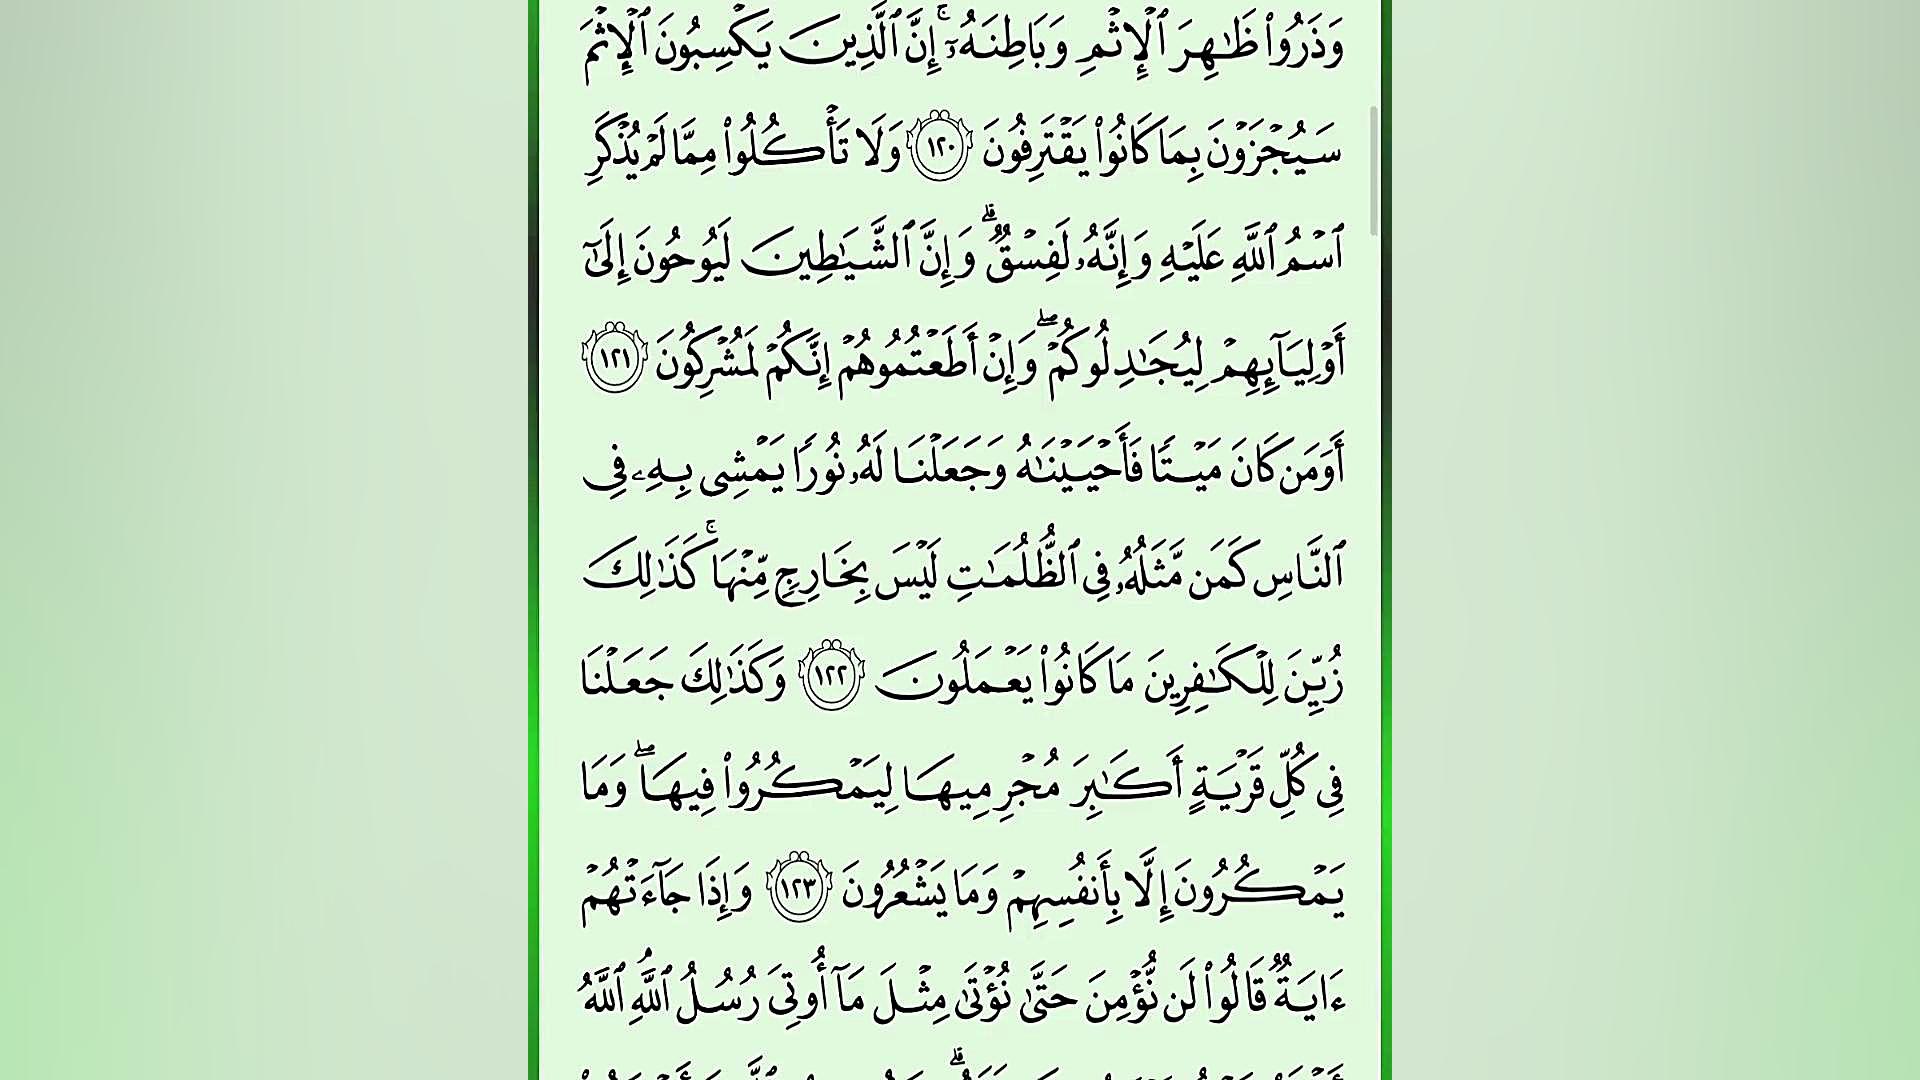 وَذَرُوا۟ ظَـٰهِرَ ٱلْإِثْمِ وَبَاطِنَهُۥٓ ۚ إِنَّ ٱلَّذِينَ يَكْسِبُونَ ٱلْإِثْمَ
سَيُجْزَوْنَ بِمَا كَانُوا۟ يَقْتَرِفُونَ ١٢٠ وَلَا تَأْكُلُوا۟ مِمَّا لَمْ يُذْكَرِ
ٱسْمُ ٱللَّهِ عَلَيْهِ وَإِنَّهُۥ لَفِسْقٌ ۗ وَإِنَّ ٱلشَّيَـٰطِينَ لَيُوحُونَ إِلَىٰٓ
أَوْلِيَآئِهِمْ لِيُجَـٰدِلُوكُمْ ۖ وَإِنْ أَطَعْتُمُوهُمْ إِنَّكُمْ لَمُشْرِكُونَ ١٢١
أَوَمَن كَانَ مَيْتًا فَأَحْيَيْنَـٰهُ وَجَعَلْنَا لَهُۥ نُورًا يَمْشِى بِهِۦ فِى
ٱلنَّاسِ كَمَن مَّثَلُهُۥ فِى ٱلظُّلُمَـٰتِ لَيْسَ بِخَارِجٍ مِّنْهَا ۚ كَذَٰلِكَ
زُيِّنَ لِلْكَـٰفِرِينَ مَا كَانُوا۟ يَعْمَلُونَ ١٢٢ وَكَذَٰلِكَ جَعَلْنَا
فِى كُلِّ قَرْيَةٍ أَكَـٰبِرَ مُجْرِمِيهَا لِيَمْكُرُوا۟ فِيهَا ۖ وَمَا
يَمْكُرُونَ إِلَّا بِأَنفُسِهِمْ وَمَا يَشْعُرُونَ ١٢٣ وَإِذَا جَآءَتْهُمْ
ءَايَةٌ قَالُوا۟ لَن نُّؤْمِنَ حَتَّىٰ نُؤْتَىٰ مِثْلَ مَآ أُوتِىَ رُسُلُ ٱللَّهِ ۘ ٱللَّهُ